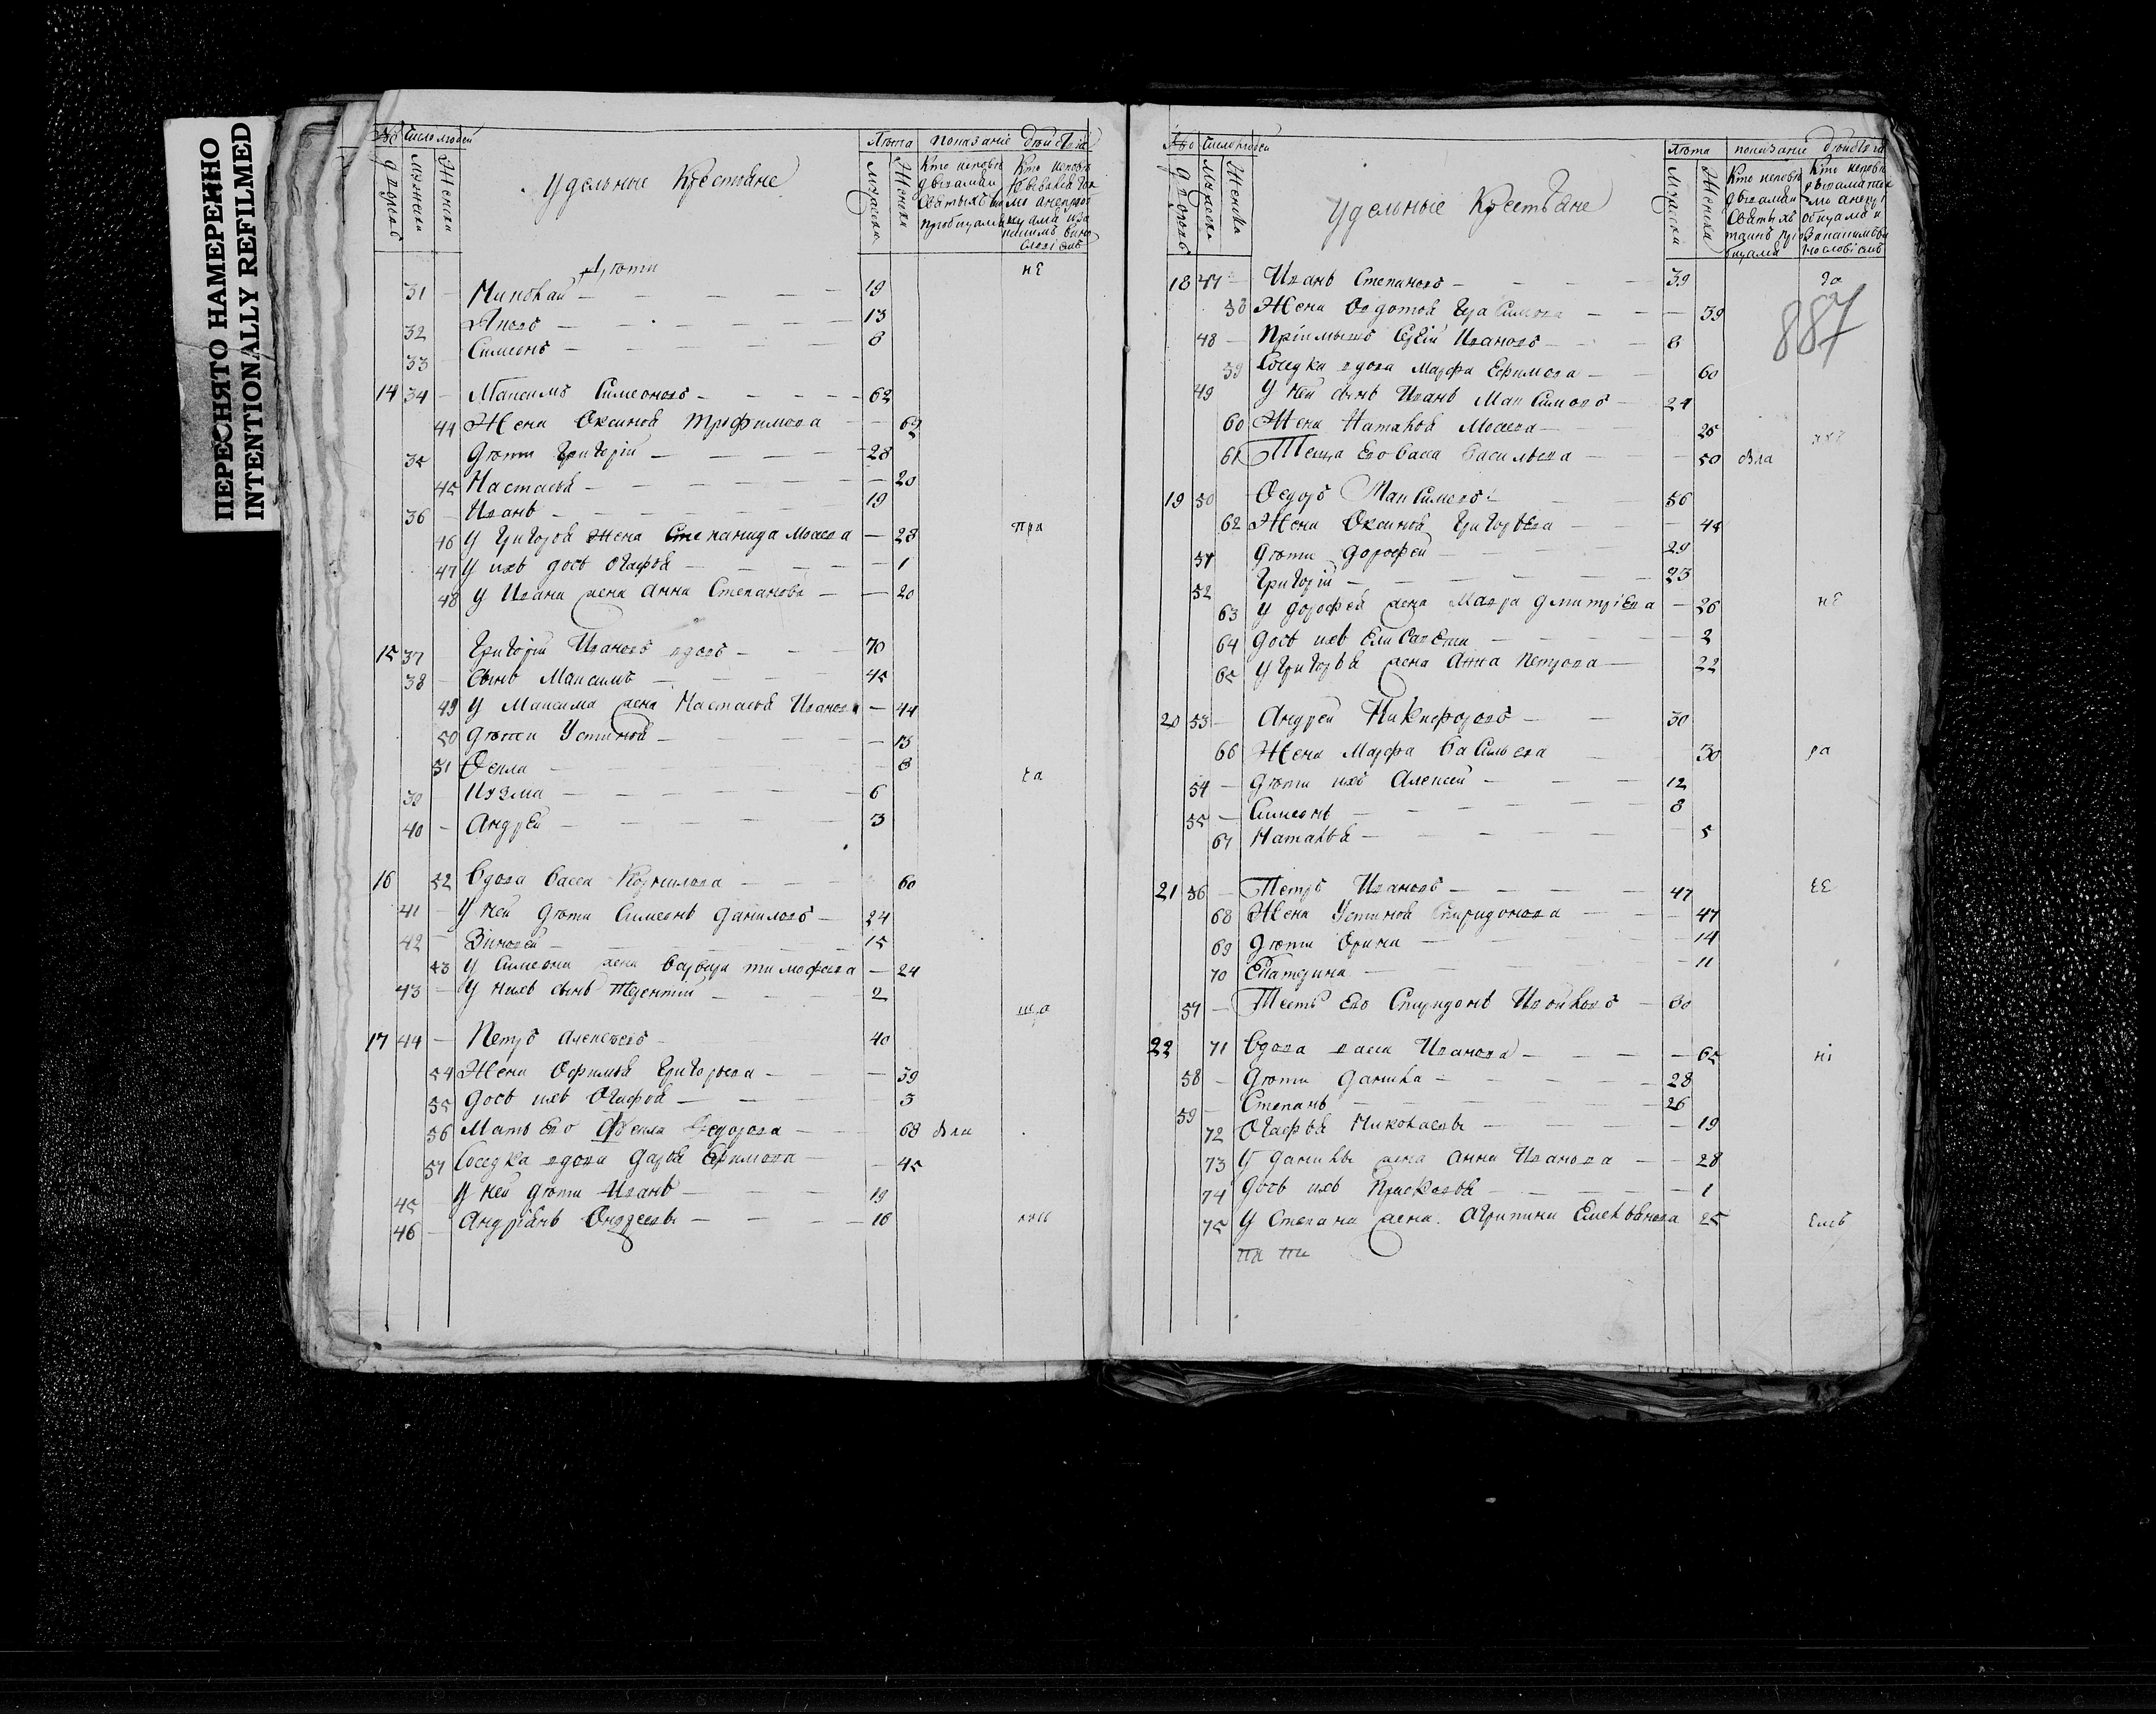 ПЕРЕСНЯТО НАМЕРЕННО
INTENTIONALLY REFILMED
№ Число людей
Лѣта показаніе дѣйства
Мужеска Женска
Удельные Крестьяне
Дѣти не
31 Николай 19
32 Яковъ 13
33 Симеонъ 8
14 34 Максимъ Симеоновъ 62
44 Жена Оксинья Трофимова 62
35 Дѣти Григорій 28
45 Настасья 20
36 Иванъ 19
46 У Григорья Жена Степанида Мосева 28 при
47 У ихъ дочь Огафья 1
48 У Ивана жена Анна Степанова 20
15 37 Григорій Ивановъ вдовъ 70
38 Сынъ Максимъ 45
49 У Максима жена Настасья Иванова 44
50 Дѣти Устинья 13
51 Фекла 8
39 Кузма 6
40 Андрей 3
16 52 Вдова Васса Корнилова 60
41 У ней дѣти Симеонъ Даниловъ 24
42 Зиновей 15
53 У Симеона жена Варвара Тимофеева 24
43 У нихъ сынъ Терентій 2
17 44 Петръ Алексѣевъ 40
54 Жена Офимья Григорьева 39
55 Дочь ихъ Огафья 3
56 Мать Его Фекла Федорова 68
57 Соседка вдова Дарья Ефимова 45
45 У ней дѣти Иванъ 19
46 Андріянъ Ондреевы 16
№ Число людей
Лѣта показаніе дѣйства
Мужеска Женска
Удельные Крестьяне
887
18 47 Иванъ Степановъ 39
58 Жена Овдотья Герасимова 39
48 Пріимышъ Сергій Ивановъ 8
59 Соседка вдова Марфа Ефимова 60
49 У ней сынъ Иванъ Максимовъ 24
60 Жена Наталья Мосева 26
61 Теща Его Васса Васильева 50
19 50 Федоръ Максимовъ 56
62 Жена Оксинья Григорьева 45
51 Дѣти Дорофей 29
52 Григорій 23
63 У Дорофея жена Мавра Дмитріева 26 не
64 Дочь ихъ Елисавета 2
65 У Григорья жена Анна Петрова 22
20 53 Андрей Никифоровъ 30
66 Жена Марфа Васильева 30
54 Дѣти ихъ Алексей 12
55 Симеонъ 8
67 Наталья 5
21 56 Петръ Ивановъ 47
68 Жена Устинья Спиридонова 47
69 Дѣти Орина 14
70 Екатерина 11
57 Тесть Его Спиридонъ 80
22 71 Вдова Васса Иванова 65
58 Дѣти Данила 28
59 Степанъ 26
72 Огафья Николаевы 19
73 У Данилы жена Анна Иванова 28
74 Дочь ихъ Просковья 1
75 У Степана жена Агрипина Емельянова 25